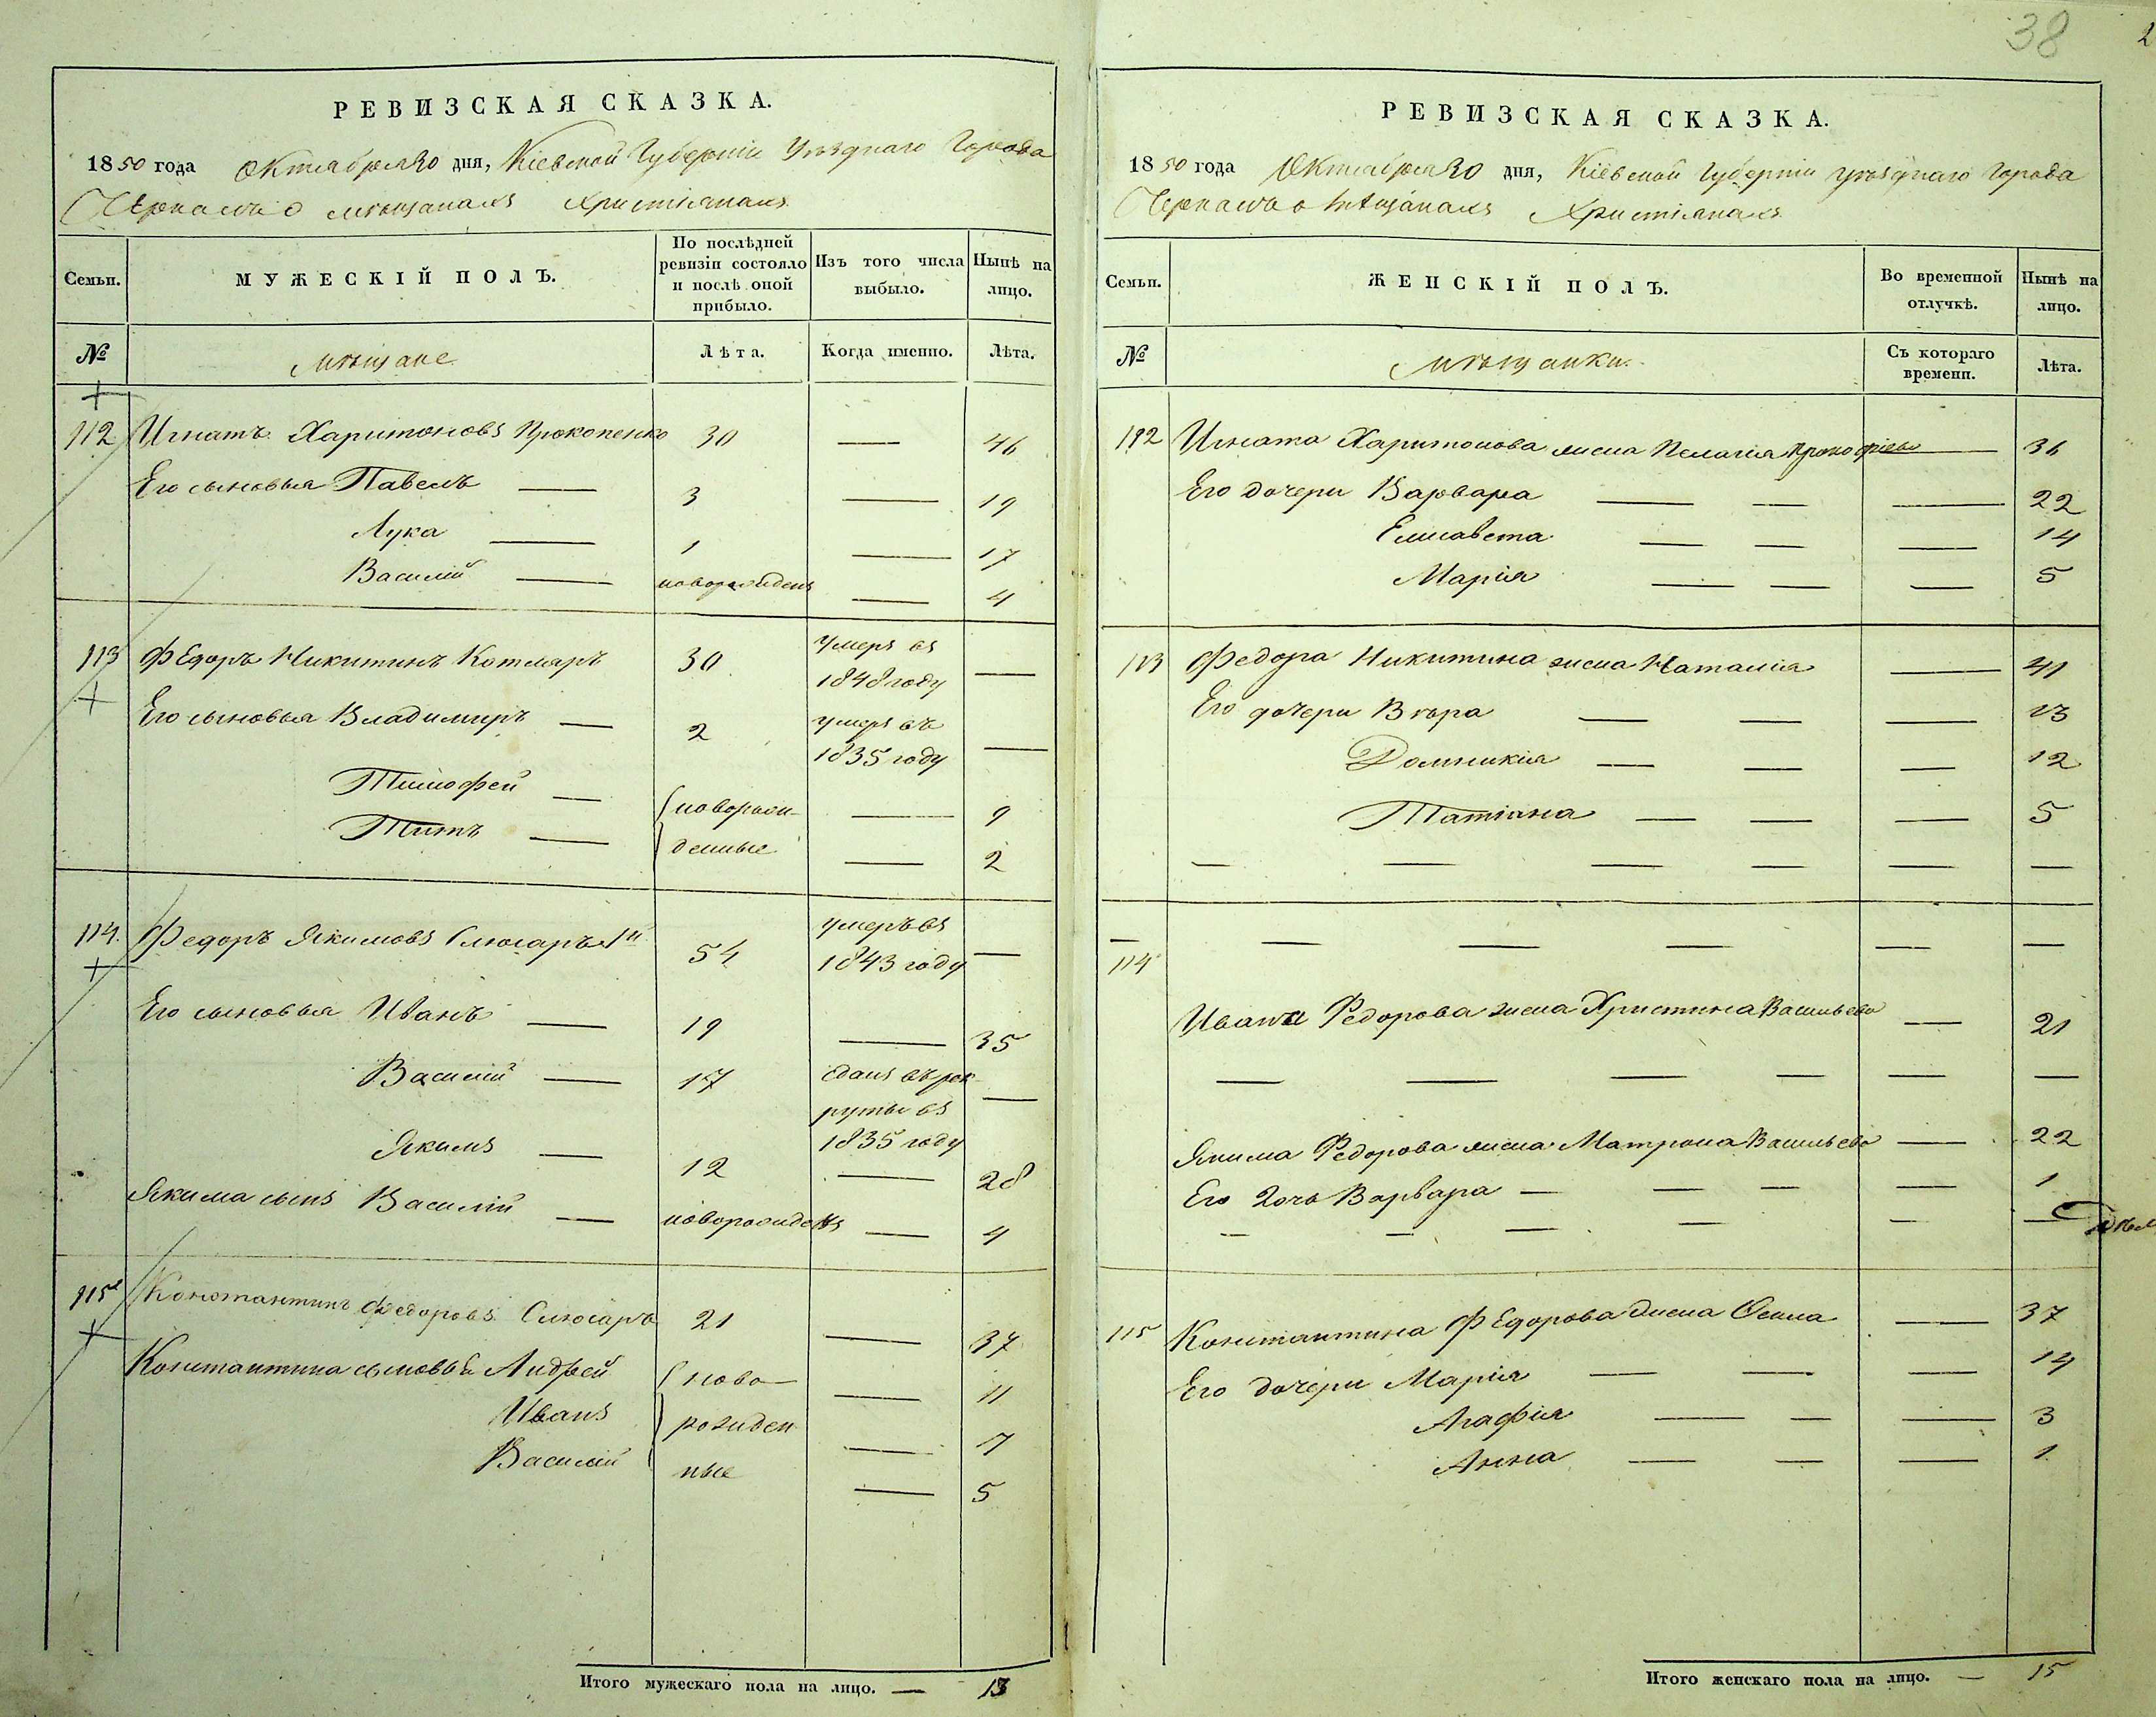 38
2
РЕВИЗСКАЯ СКАЗКА.
1850 года Октября 20 дня, Кіевской Губерніи Уѣзднаго Города
Черкасъ о мѣщанахъ Христіянахъ
Семьи.
МУЖЕСКІЙ ПОЛЪ.
По послѣдней ревизіи состояло и послѣ оной прибыло.
Изъ того числа выбыло.
Нынѣ на лицо.
№
мѣщане
Лѣта.
Когда именно.
Лѣта.
112 Игнатъ Харитоновъ Прокопенко 30 — 46
Его сыновья Павелъ — 3 — 19
Лука — 1 — 17
Василій — новорожденъ — 4
113 Федоръ Никитинъ Котляръ 30 умеръ въ 1848 году —
Его сыновья Владимиръ — 2 умеръ въ 1835 году —
Тимофей — новорож- — 9
Титъ — денные — 2
114. Федоръ Якимовъ Слюсаръ 1й 54 умеръ въ 1843 году —
Его сыновья Иванъ — 19 — 35
Василій — 17 сданъ въ рек руты въ 1835 году —
Якимъ — 12 — 28
Якима сынъ Василій — новорожденъ — 4
115 Константинъ Федоровъ Слюсаръ 21 — 37
Константина сыновья Андрей ново — 11
Иванъ рожден — 7
Василій ные — 5
Итого мужескаго пола на лицо. — 13
РЕВИЗСКАЯ СКАЗКА.
1850 года Октября 20 дня, Кіевской Губерніи уѣзднаго Города
Черкасъ о мѣщанахъ Христіянахъ
Семьи.
ЖЕНСКІЙ ПОЛЪ.
Во временной отлучкѣ.
Нынѣ на лицо.
№
мѣщанки.
Съ котораго времени.
Лѣта.
112 Игната Харитонова жена Пелагія Прокофіева — 36
Его дочери Варвара — — — 22
Елисавета — — — 14
Марія — — — 5
113 Федора Никитина жена Наталія — 41
Его дочери Вѣра — — — 13
Домникія — — — 12
Татіана — — — 5
— — — — — —
— — — — — —
114
Ивана Федорова жена Христина Васильева — 21
— — — — — —
Якима Федорова жена Матрона Васильева — 22
Его дочь Варвара — — — — 1
— — — — — —
115 Константина Федорова жена — 37
Его дочери Марія — — — 14
Агафія — — — 3
Анна — — — 1
Итого женскаго пола на лицо. — 15